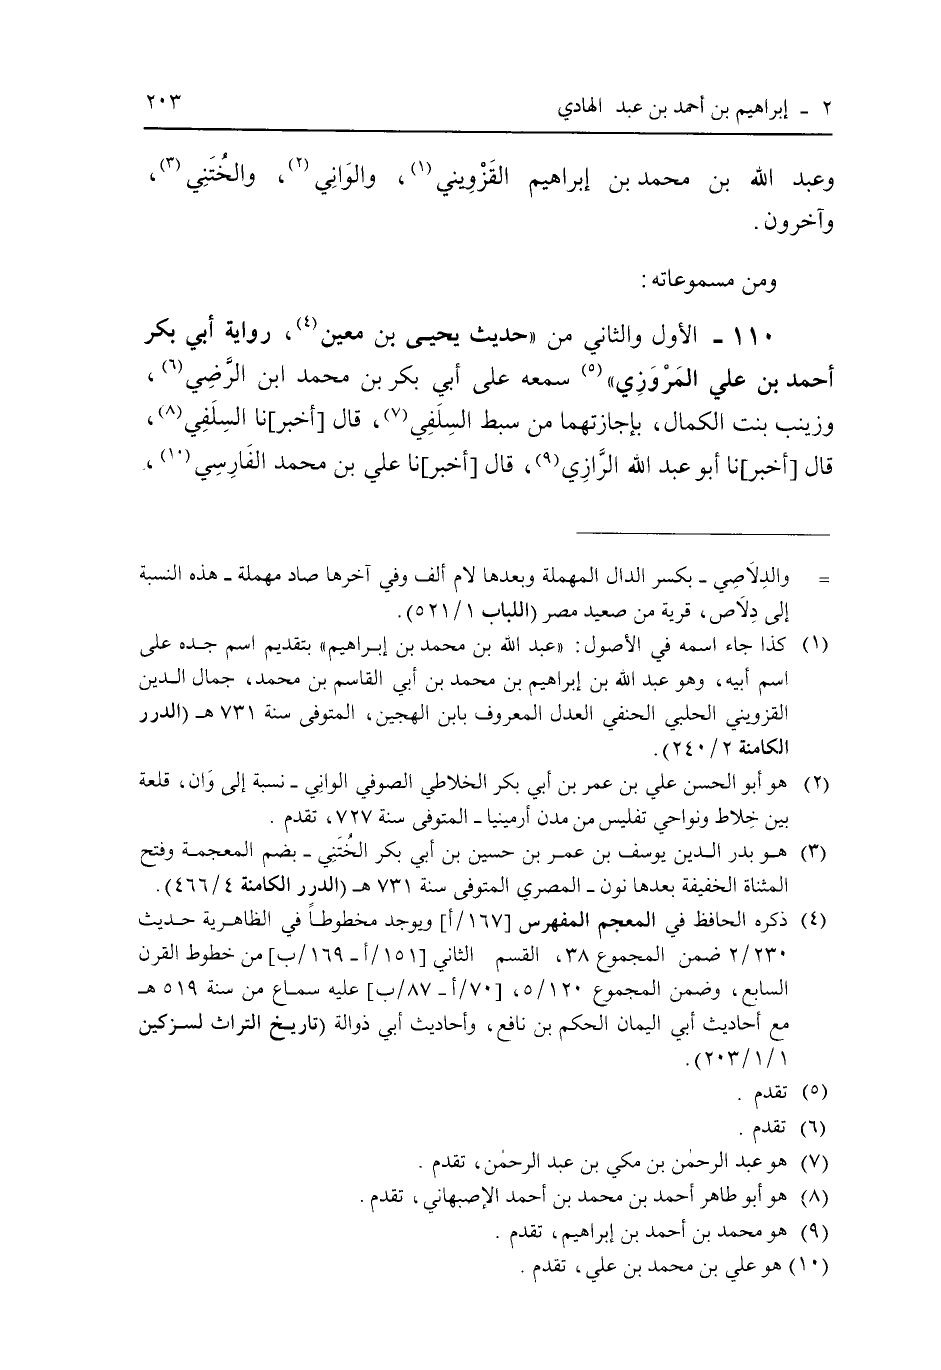 ٢ ـ إبراهيم بن أحمد بن عبد الهادي
٢٠٣
وعبد الله بن محمد بن إبراهيم القَزْوِيني(١)، والوَانِي(٢)، والخُتَنِي(٣)،
وآخرون.
ومن مسموعاته:
١١٠ ـ الأول والثاني من «حديث يحيى بن معين(٤)، رواية أبي بكر
أحمد بن علي المَرْوَزِي»(٥) سمعه على أبي بكر بن محمد ابن الرَّضِي(٦)،
وزينب بنت الكمال، بإجازتهما من سبط السِلَفي(٧)، قال [أخبر]نا السِلَفِي(٨)،
قال [أخبر]نا أبو عبد الله الرَّازِي(٩)، قال [أخبر]نا علي بن محمد الفَارِسِي(١٠)،
= والدِلَاصِي ـ بكسر الدال المهملة وبعدها لام ألف وفي آخرها صاد مهملة ـ هذه النسبة
إلى دِلَاص، قرية من صعيد مصر (اللباب ١/ ٥٢١).
(١) كذا جاء اسمه في الأصول: «عبد الله بن محمد بن إبراهيم» بتقديم اسم جده على
اسم أبيه، وهو عبد الله بن إبراهيم بن محمد بن أبي القاسم بن محمد، جمال الدين
القزويني الحلبي الحنفي العدل المعروف بابن الهجين، المتوفى سنة ٧٣١ هـ (الدرر
الكامنة ٢/ ٢٤٠).
(٢) هو أبو الحسن علي بن عمر بن أبي بكر الخلاطي الصوفي الواني ـ نسبة إلى وَان، قلعة
بين خِلاط ونواحي تفليس من مدن أرمينيا ـ المتوفى سنة ٧٢٧، تقدم.
(٣) هو بدر الدين يوسف بن عمر بن حسين بن أبي بكر الخُتَنِي ـ بضم المعجمة وفتح
المثناة الخفيفة بعدها نون ـ المصري المتوفى سنة ٧٣١ هـ (الدرر الكامنة ٤/ ٤٦٦).
(٤) ذكره الحافظ في المعجم المفهرس [١٦٧/أ] ويوجد مخطوطاً في الظاهرية حديث
٢/٢٣٠ ضمن المجموع ٣٨، القسم الثاني [١٥١/أ ـ ١٦٩/ب] من خطوط القرن
السابع، وضمن المجموع ٥/١٢٠، [٧٠/أ ـ ٨٧/ب] عليه سماع من سنة ٥١٩ هـ
مع أحاديث أبي اليمان الحكم بن نافع، وأحاديث أبي ذوالة (تاريخ التراث لسزكين
٢٠٣/١/١).
(٥) تقدم.
(٦) تقدم.
(٧) هو عبد الرحمٰن بن مكي بن عبد الرحمٰن، تقدم.
(٨) هو أبو طاهر أحمد بن محمد بن أحمد الإصبهاني، تقدم.
(٩) هو محمد بن أحمد بن إبراهيم، تقدم.
(١٠) هو علي بن محمد بن علي، تقدم.